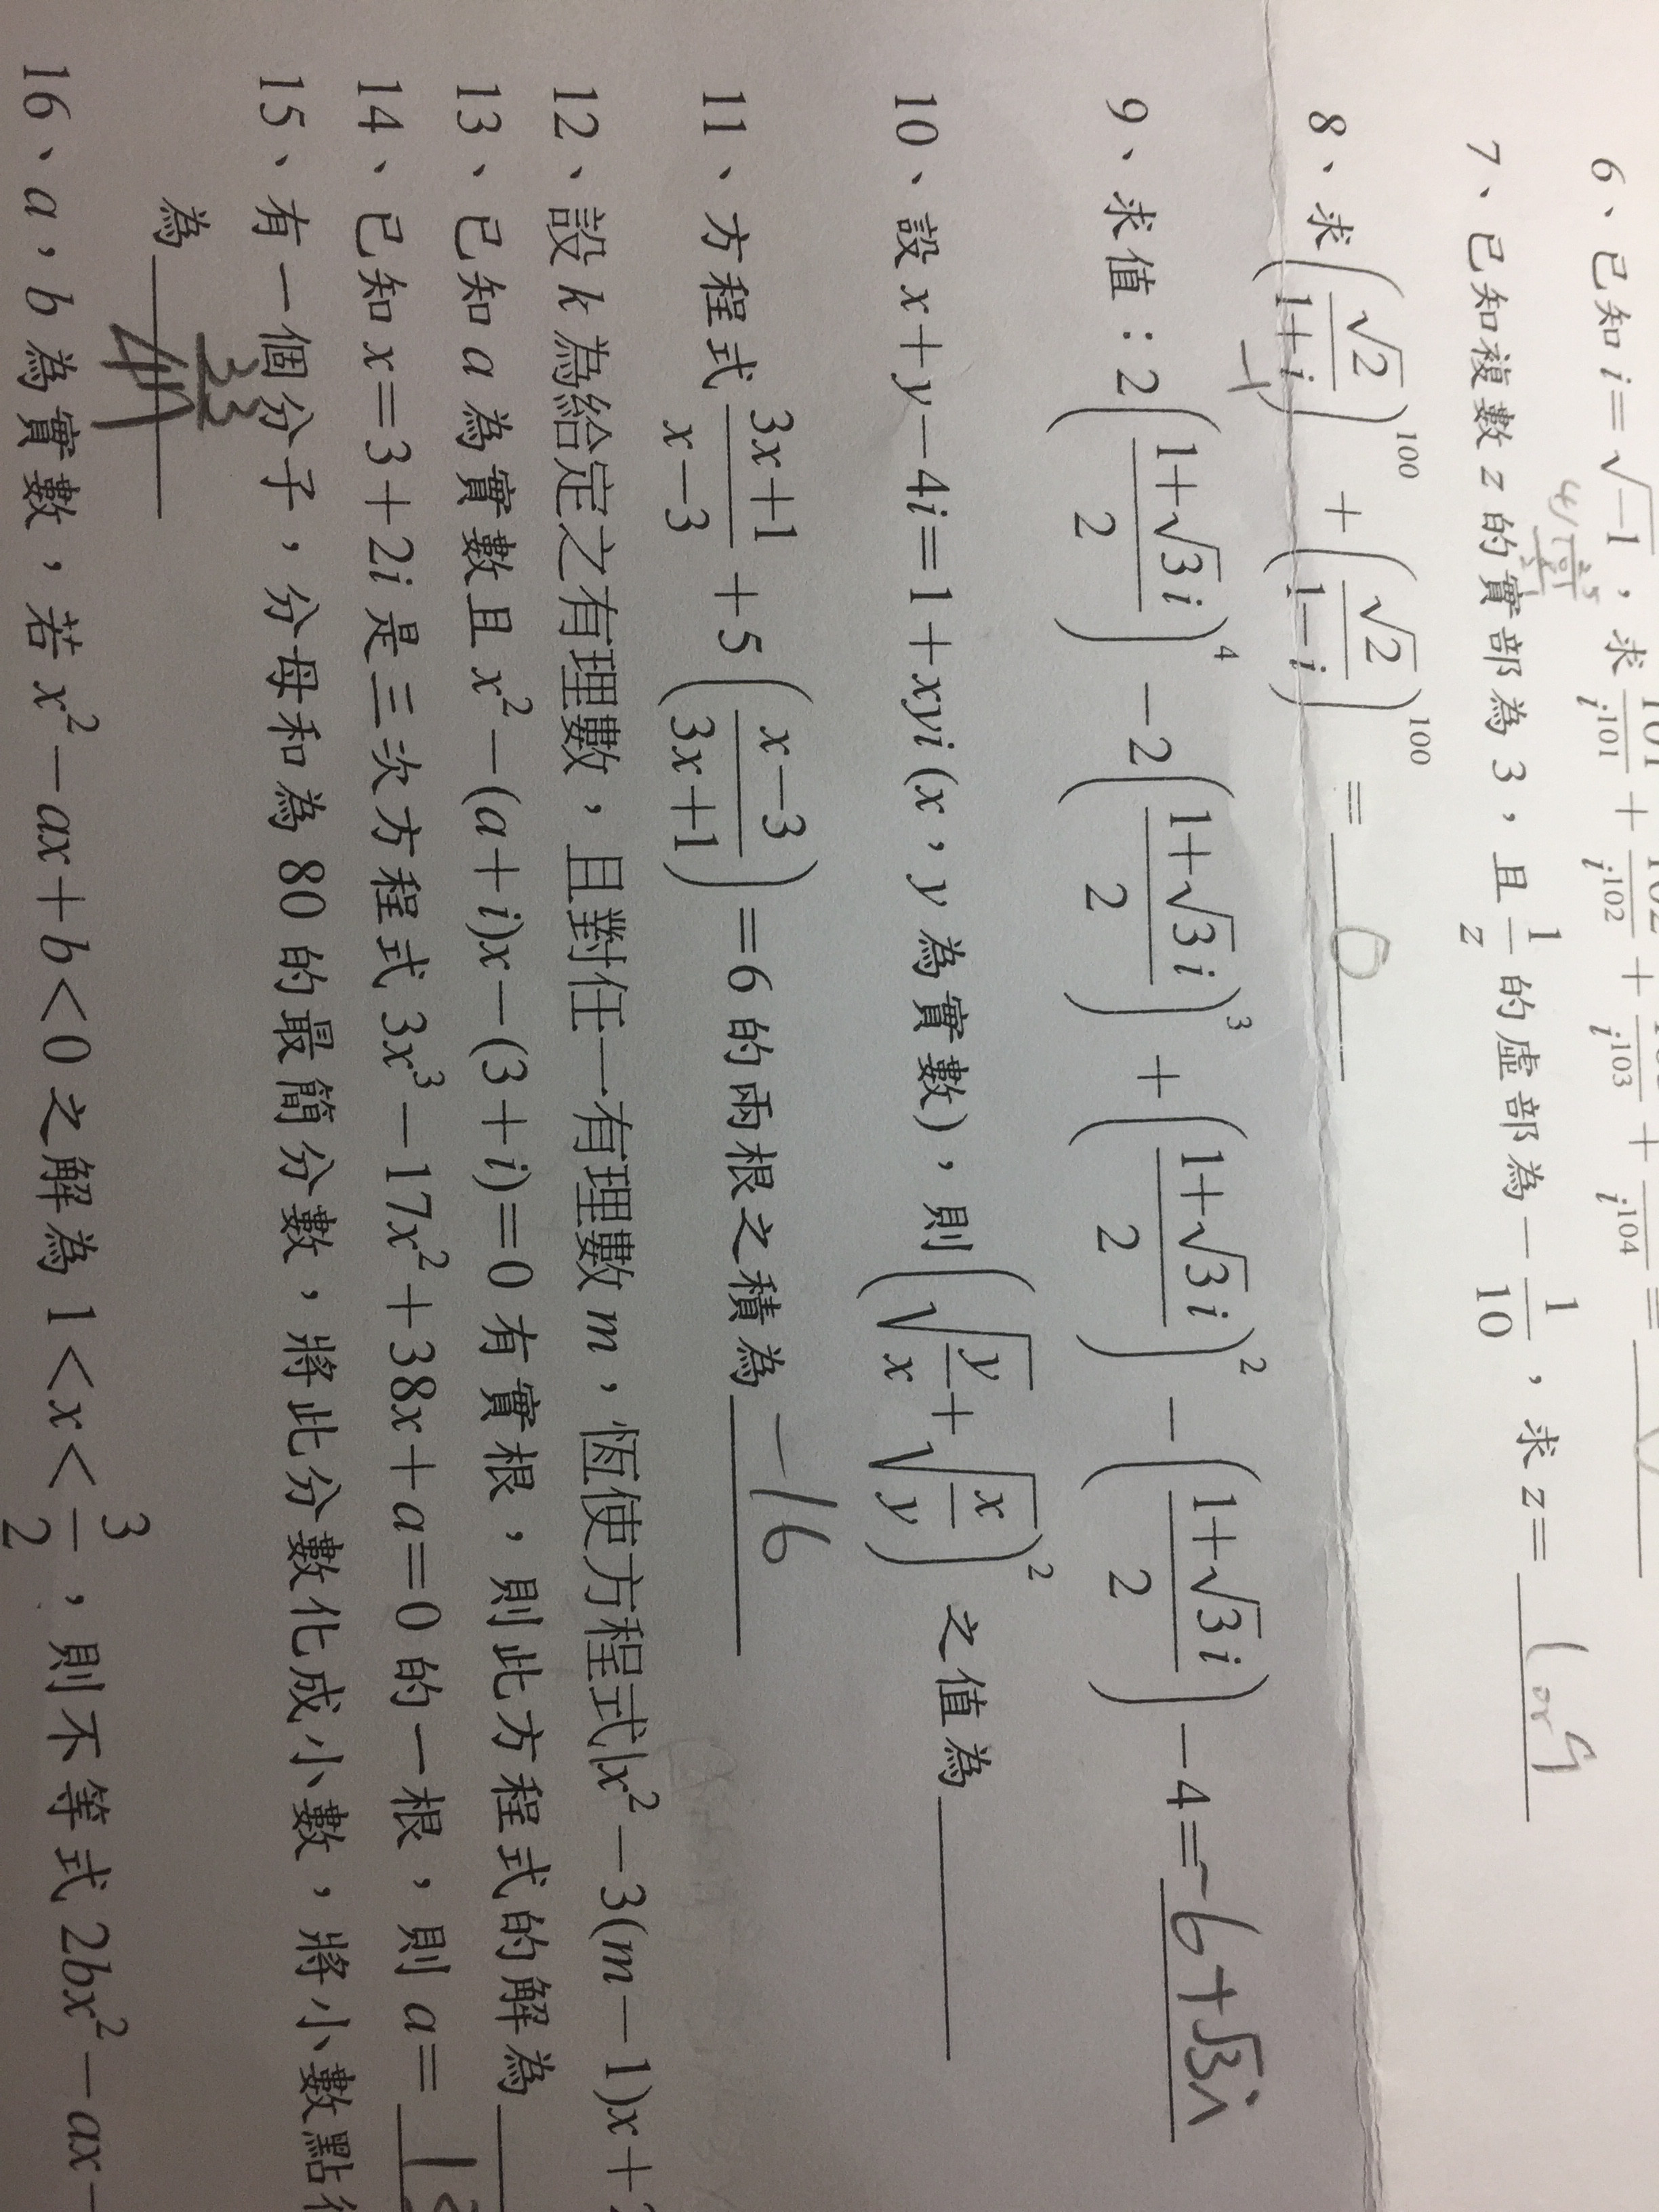 6、已知 i=√-1，求 101/i^101 + 102/i^102 + /i^103 + /i^104 =
7、已知複數 z 的實部為 3，且 1/z 的虛部為 -1/10，求 z= 1 or 9
8、求 (√2/(1+i))^100 + (√2/(1-i))^100 = 0
-1
9、求值：2((1+√3i)/2)^4 -2((1+√3i)/2)^3 + ((1+√3i)/2)^2 - ((1+√3i)/2) -4= -6+√3i
10、設 x+y-4i=1+xyi (x，y 為實數)，則 (√(y/x)+√(x/y))^2 之值為
11、方程式 (3x+1)/(x-3) +5((x-3)/(3x+1))=6 的兩根之積為 -16
12、設 k 為給定之有理數，且對任一有理數 m，恆使方程式 x²-3(m-1)x+
13、已知 a 為實數且 x²-(a+i)x-(3+i)=0 有實根，則此方程式的解為
14、已知 x=3+2i 是三次方程式 3x³-17x²+38x+a=0 的一根，則 a=
15、有一個分子，分母和為 80 的最簡分數，將此分數化成小數，將小數點後
為 33/47
16、a，b 為實數，若 x²-ax+b<0 之解為 1<x<3/2，則不等式 2bx²-ax-